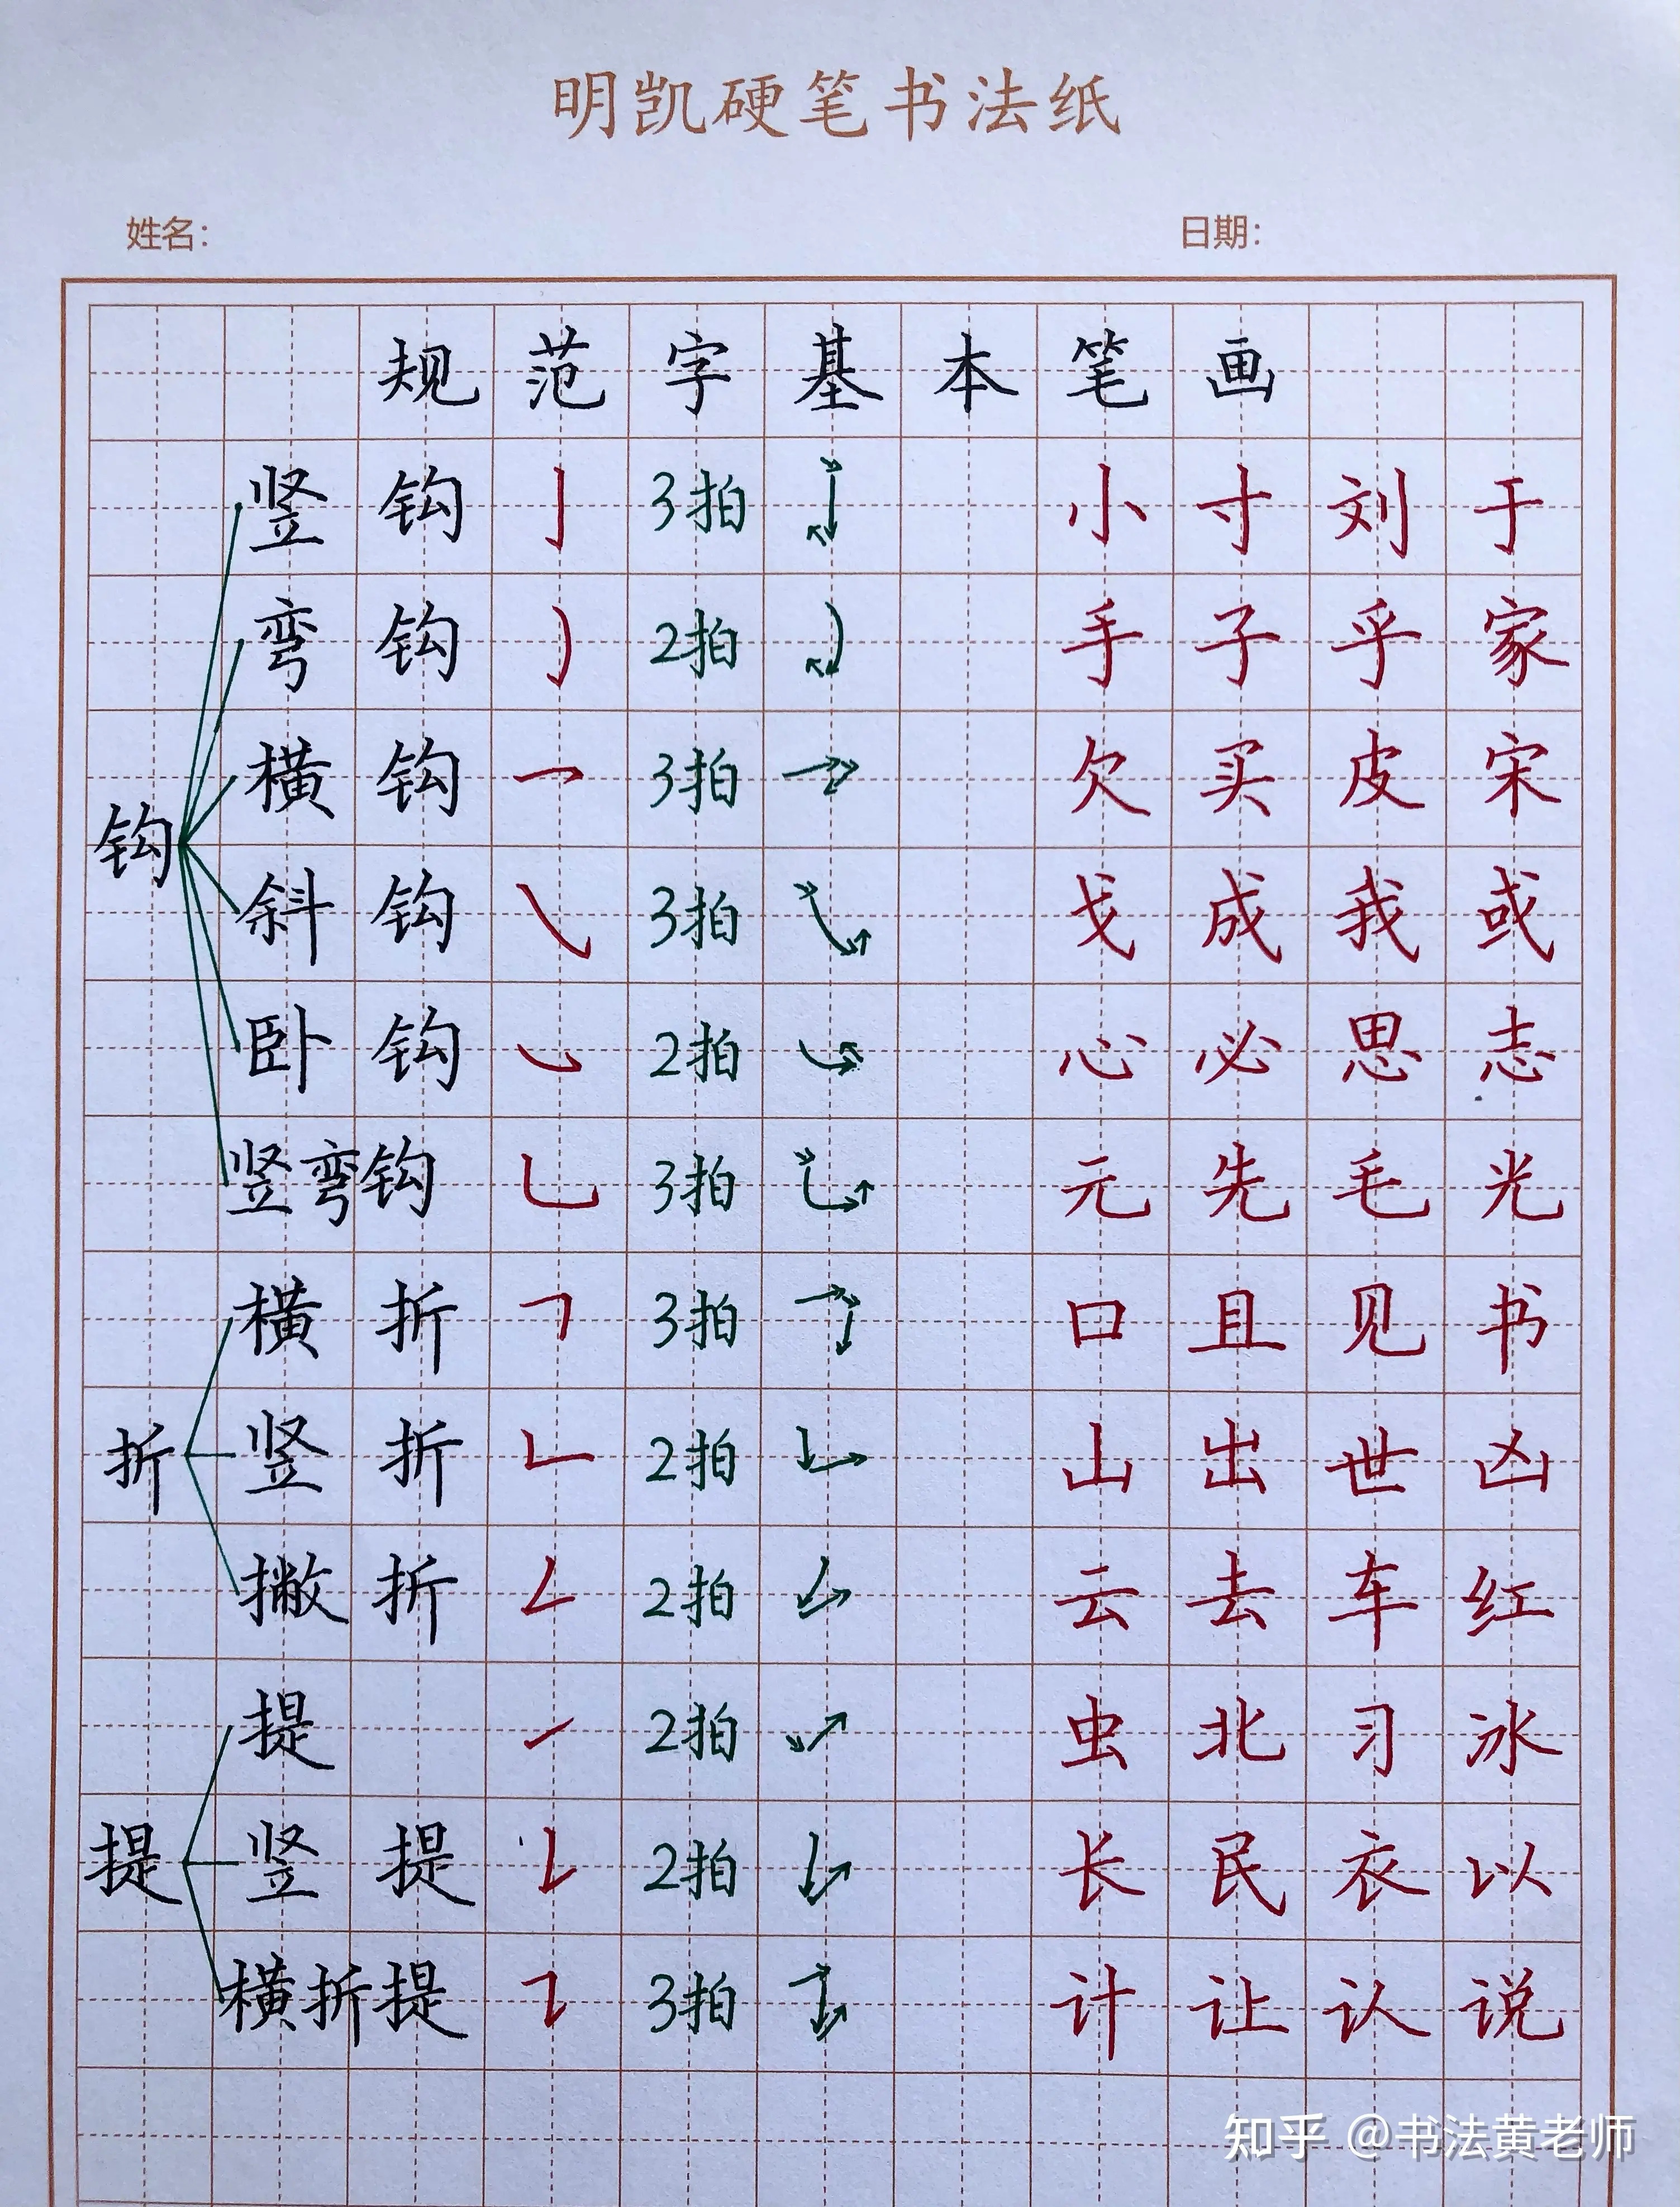 明凯硬笔书法纸
姓名： 日期：
规范字基本笔画
竖钩 亅 3拍 小寸刘于
弯钩 2拍 手子乎家
横钩 乛 3拍 欠买皮宋
钩
斜钩 ㇂ 3拍 戈成我或
卧钩 ㇃ 2拍 心必思志
竖弯钩 乚 3拍 元先毛光
横折 𠃍 3拍 口且见书
折 竖折 𠃊 2拍 山出世凶
撇折 𠃋 2拍 云去车红
提 ㇀ 2拍 虫北习冰
提 竖提 𠄌 2拍 长民衣以
横折提 ㇊ 3拍 计让认说
知乎 @书法黄老师